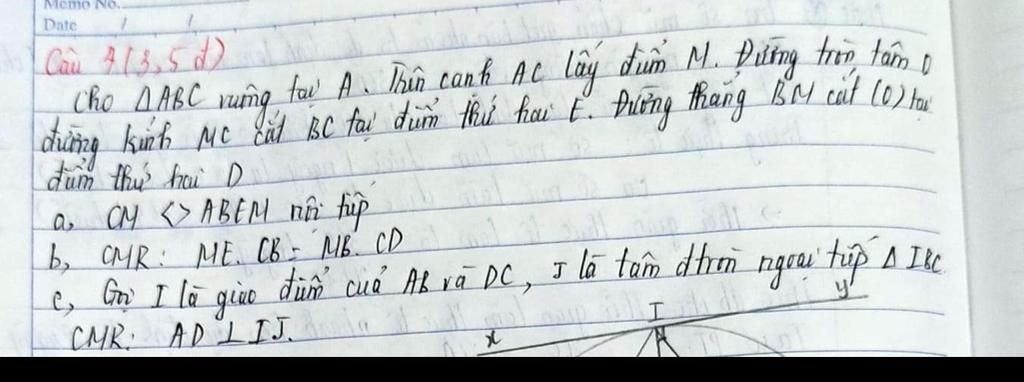 Memo No.
Date / /
Câu 4 (3,5 đ)
Cho ΔABC vuông tại A. Trên cạnh AC lấy điểm M. Đường tròn tâm O
đường kính MC cắt BC tại điểm thứ hai E. Đường thẳng BM cắt (O) tại
điểm thứ hai D
a, CM <> ABEM nội tiếp
b, CMR: ME. CB = MB. CD
c, Gọi I là giao điểm của AB và DC, J là tâm đtròn ngoại tiếp Δ IBC
CMR: AD ⊥ IJ.
x I y